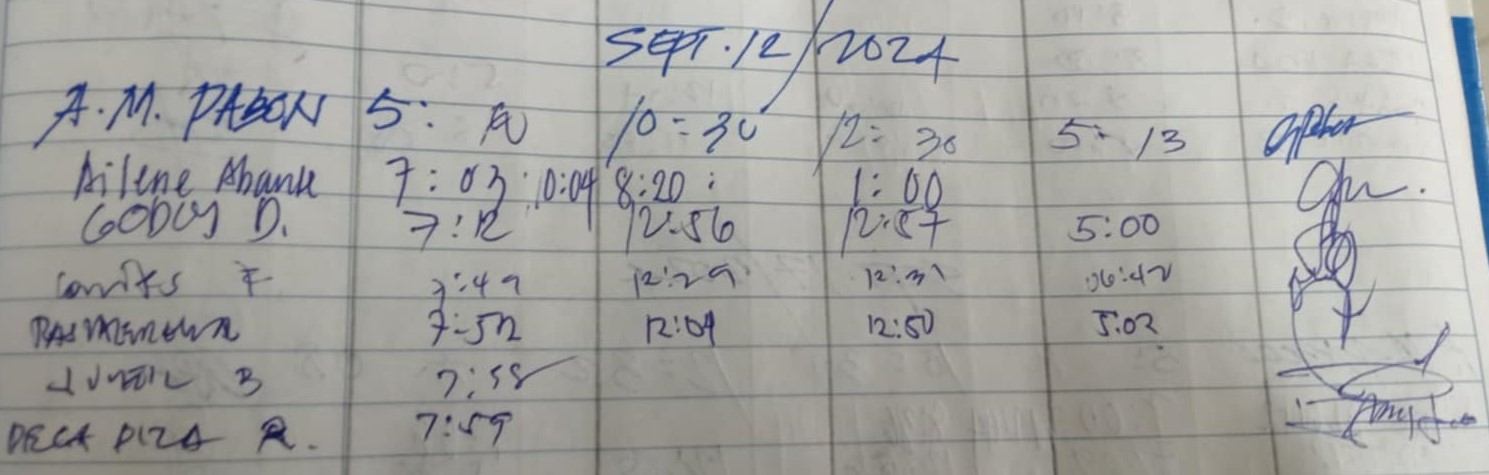 SEPT. 12/2024
A.M. PABON 5: 10:30 12:30 5:13
Ailene 7:03 10:04 8:20: 1:00
GODOY D. 7:12 12:56 12:57 5:00
F 7:49 12:29 12:31 06:42
7:52 12:04 12:50 5:02
B 7:58
DECADIZA R. 7:59